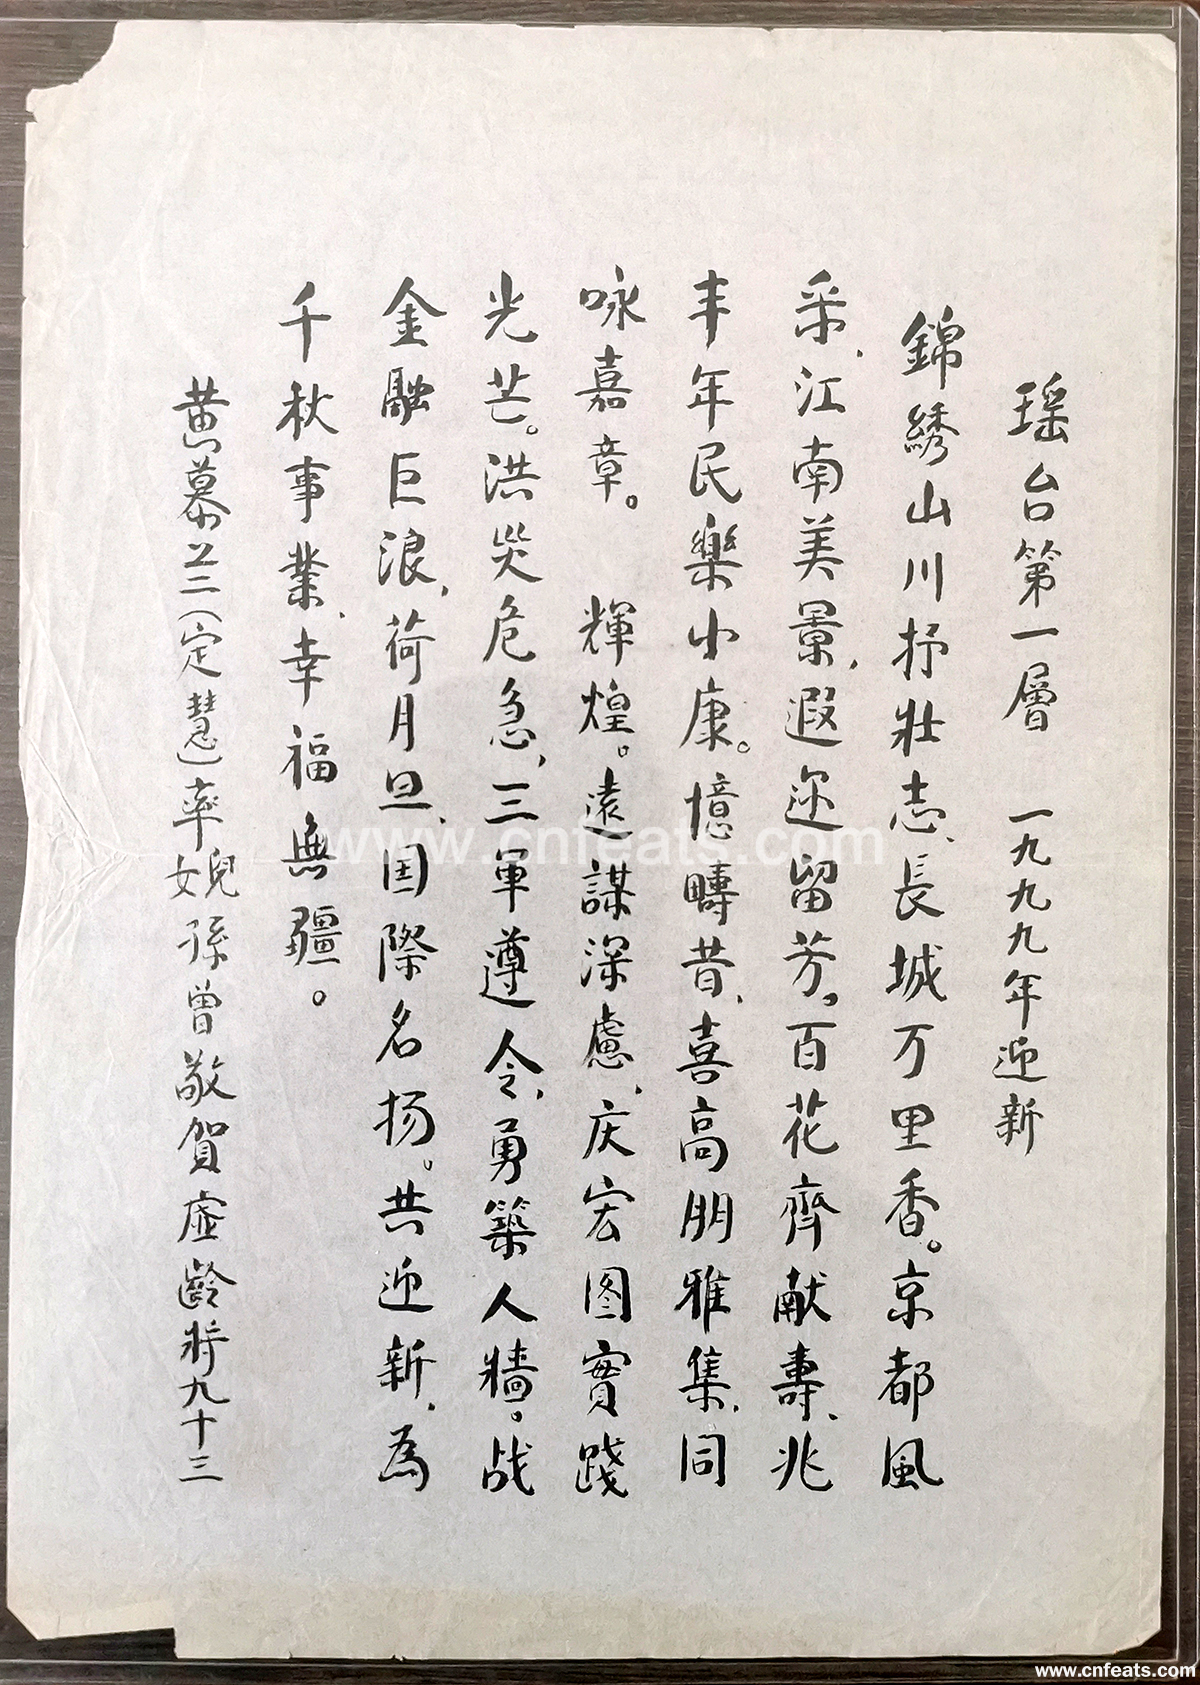 瑶台第一層　一九九九年迎新
錦綉山川抒壯志、長城万里香。京都風
采、江南美景、遐迩留芳。百花齊献壽、兆
丰年民樂小康。憶疇昔、喜高朋雅集、同
咏嘉章。　輝煌。遠謀深慮、庆宏图實踐
光芒。洪災危急、三軍遵令、勇築人牆。战
金融巨浪、荷月旦、国際名扬。共迎新、為
千秋事業、幸福無疆。
黄慕兰(定慧)率兒女孫曾敬賀虚齡将九十三
www.cnfeats.com
www.cnfeats.com